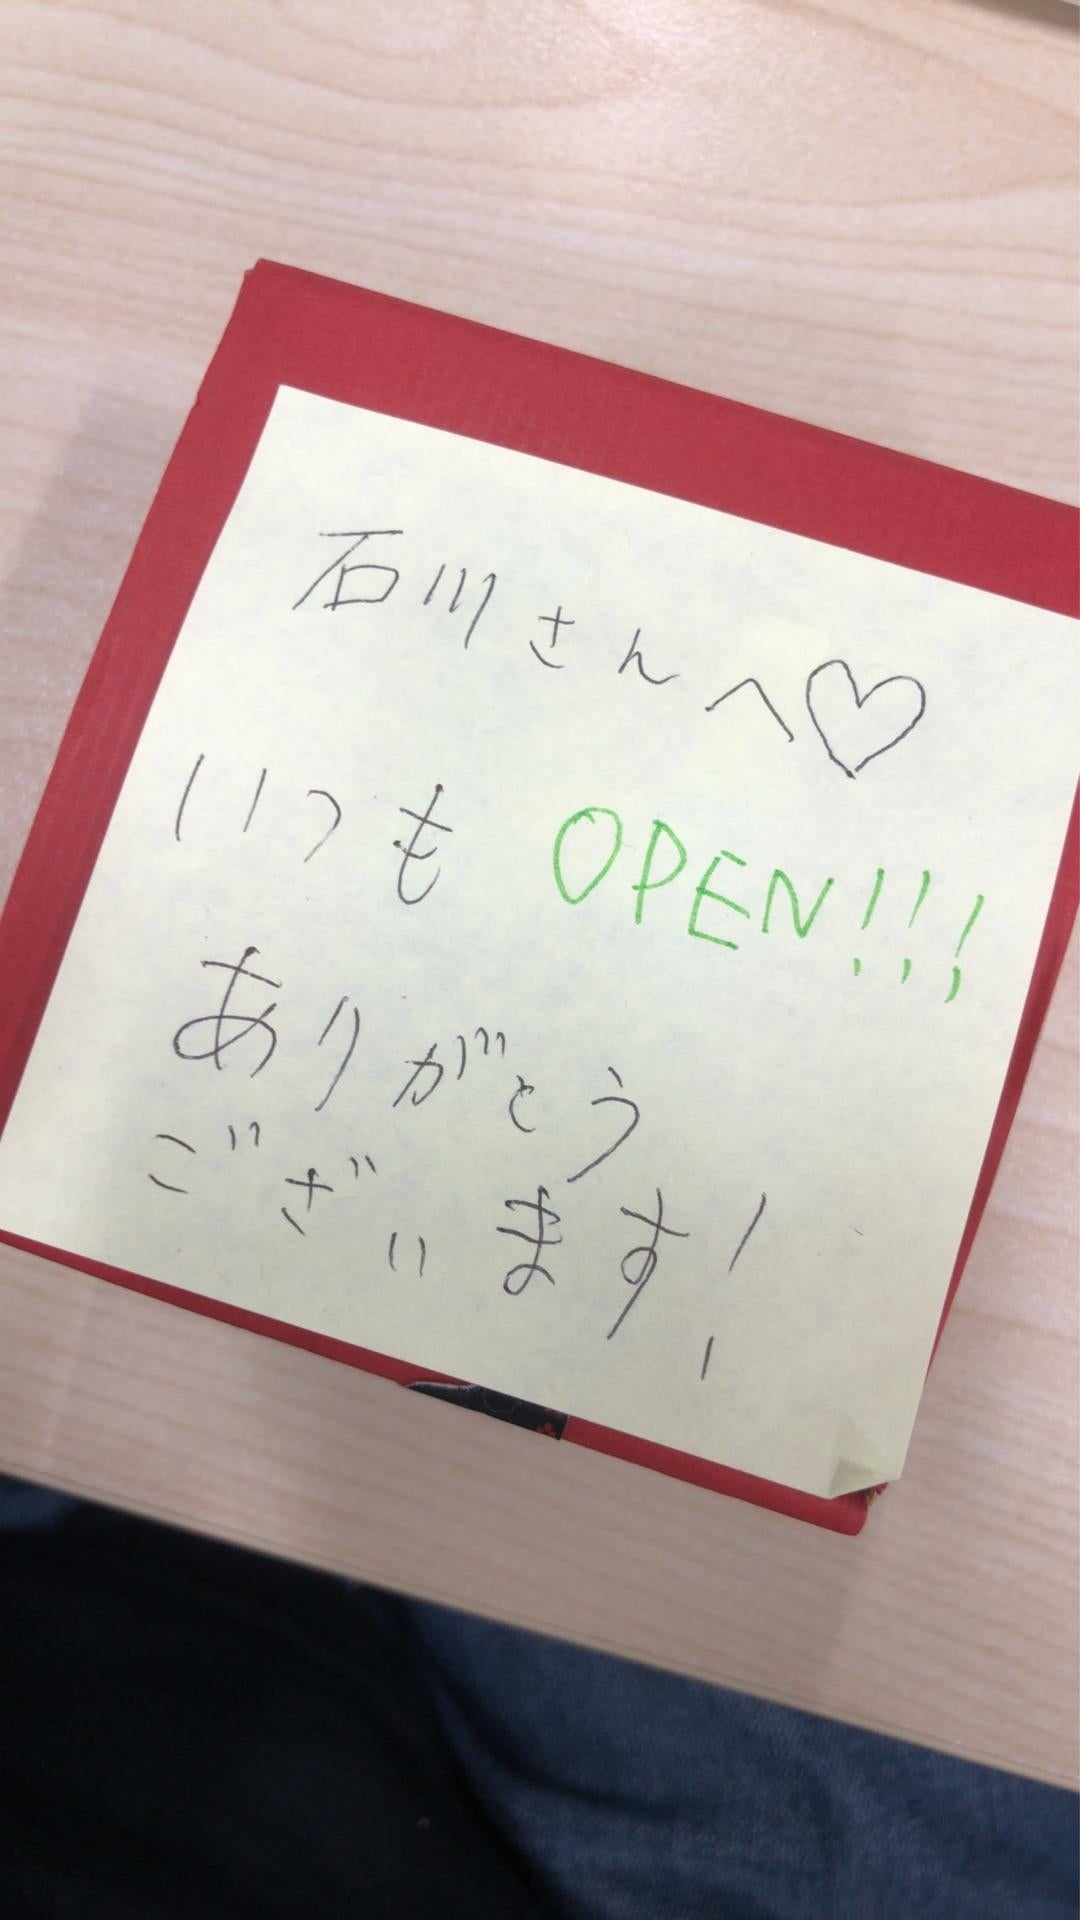 石川さんへ♡
いつも OPEN!!!
ありがとう
ございます!